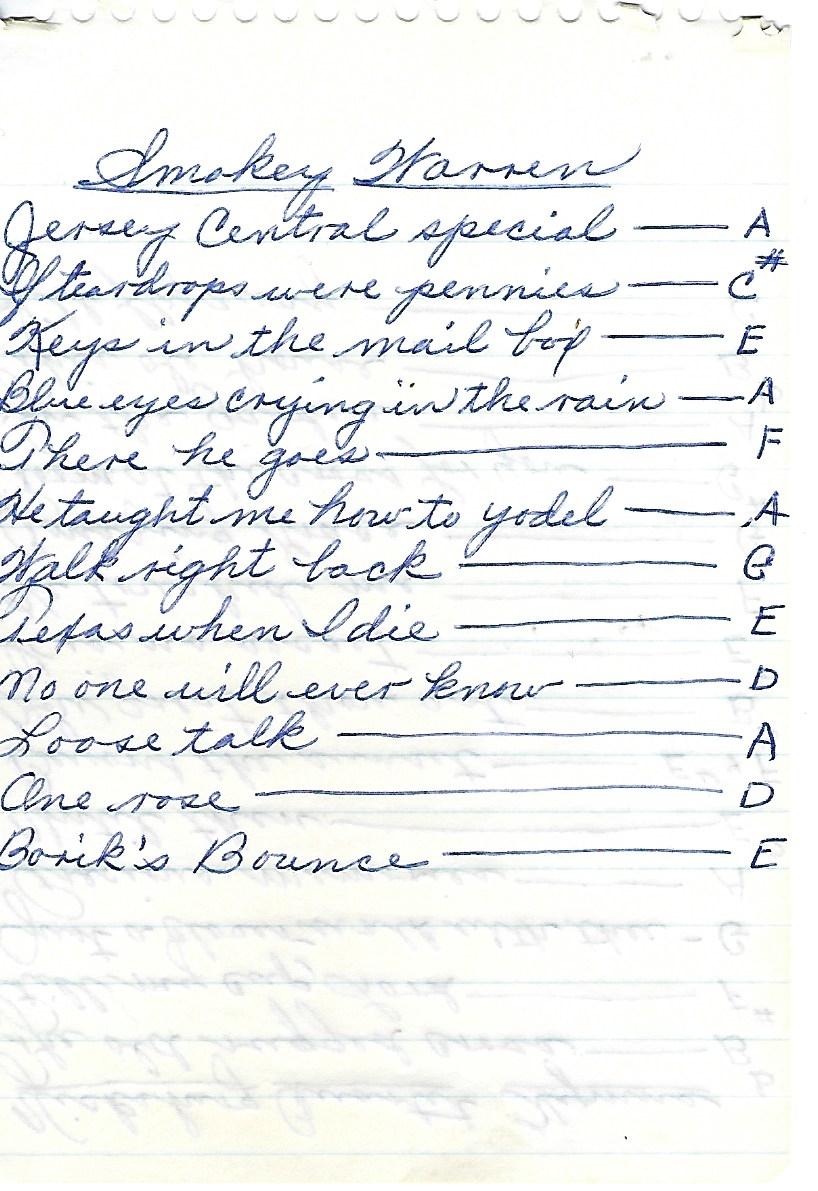 Smokey Warren
Jersey Central special — A
If teardrops were pennies — C#
Keys in the mail box — E
Blue eyes crying in the rain — A
There he goes — F
He taught me how to yodel — A
Walk right back — G
Texas when I die — E
No one will ever know — D
Loose talk — A
One rose — D
Borik's Bounce — E